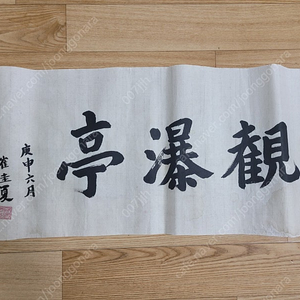 觀瀑亭
庚申六月
崔圭夏